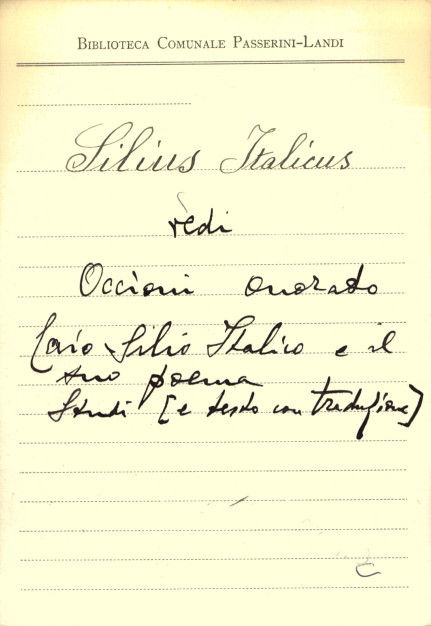 BIBLIOTECA COMUNALE PASSERINI-LANDI
Silius Italicus
vedi
Occioni Onorato
Caio Silio Italico e il
suo poema
Studi [e testo con traduzione]